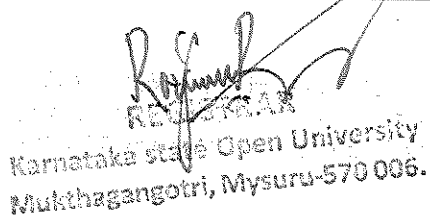 REGISTRAR
Karnataka state Open University
Mukthagangotri, Mysuru-570 006.